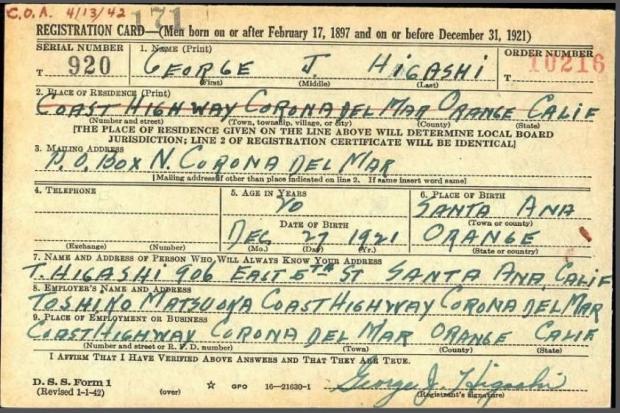 C.O.A. 4/13/42 171
REGISTRATION CARD—(Men born on or after February 17, 1897 and on or before December 31, 1921)
SERIAL NUMBER 1. NAME (Print) ORDER NUMBER
T 920 GEORGE J. HIGASHI T 10216
(First) (Middle) (Last)
2. PLACE OF RESIDENCE (Print)
COAST HIGHWAY CORONA DEL MAR ORANGE CALIF
(Number and street) (Town, township, village, or city) (County) (State)
[THE PLACE OF RESIDENCE GIVEN ON THE LINE ABOVE WILL DETERMINE LOCAL BOARD
JURISDICTION; LINE 2 OF REGISTRATION CERTIFICATE WILL BE IDENTICAL]
3. MAILING ADDRESS
P.O. BOX N. CORONA DEL MAR
[Mailing address if other than place indicated on line 2. If same insert word same]
4. TELEPHONE 5. AGE IN YEARS 6. PLACE OF BIRTH
20 SANTA ANA
DATE OF BIRTH (Town or county)
DEC 27 1921 ORANGE
(Exchange) (Number) (Mo.) (Day) (Yr.) (State or country)
7. NAME AND ADDRESS OF PERSON WHO WILL ALWAYS KNOW YOUR ADDRESS
T. HIGASHI 906 EAST 6TH ST SANTA ANA, CALIF
8. EMPLOYER'S NAME AND ADDRESS
TOSHIKO MATSUOKA COAST HIGHWAY CORONA DEL MAR
9. PLACE OF EMPLOYMENT OR BUSINESS
COAST HIGHWAY CORONA DEL MAR ORANGE CALIF
(Number and street or R. F. D. number) (Town) (County) (State)
I AFFIRM THAT I HAVE VERIFIED ABOVE ANSWERS AND THAT THEY ARE TRUE.
D. S. S. Form 1
(Revised 1-1-42) (over) ☆ GPO 16—21630-1 George J. Higashi
(Registrant's signature)